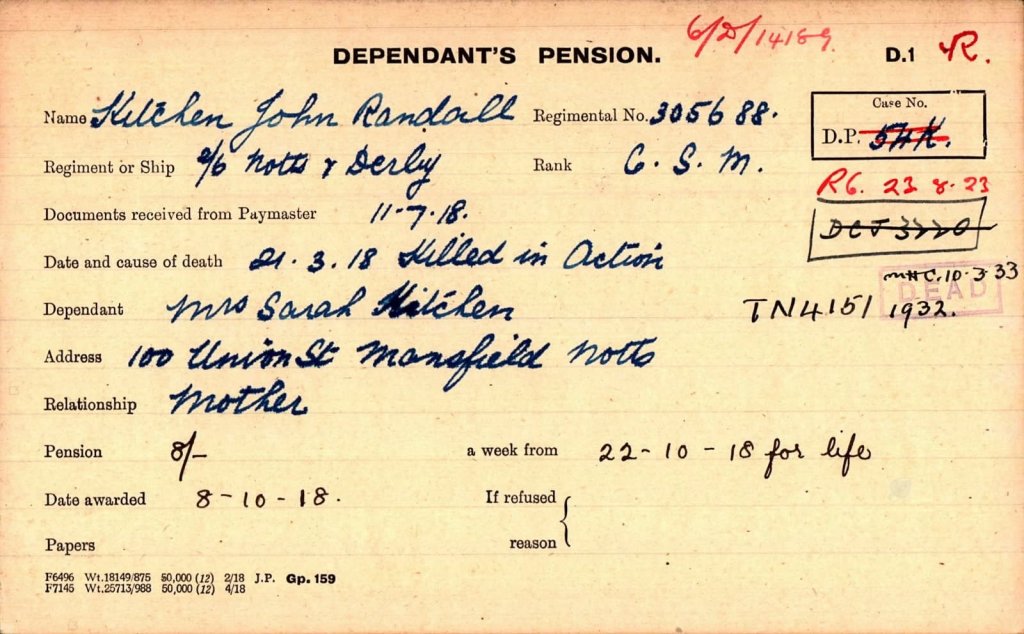 6/D/14189.
DEPENDANT'S PENSION. D.1 R.
Name Kitchen John Randall Regimental No. 305688. Case No.
D.P. 54K.
Regiment or Ship 2/6 Notts & Derby Rank C. S. M.
R6. 23 8.23
Documents received from Paymaster 11-7-18.
DCJ 3220
Date and cause of death 21. 3. 18 Killed in Action
10.3.33
DEAD
Dependant Mrs Sarah Kitchen TN4151 1932.
Address 100 Union St Mansfield Notts
Relationship Mother
Pension 8/- a week from 22-10-18 for life
Date awarded 8-10-18. If refused
Papers reason
F6496 Wt.18149/875 50,000 (12) 2/18 J.P. Gp. 159
F7145 Wt.25713/988 50,000 (12) 4/18